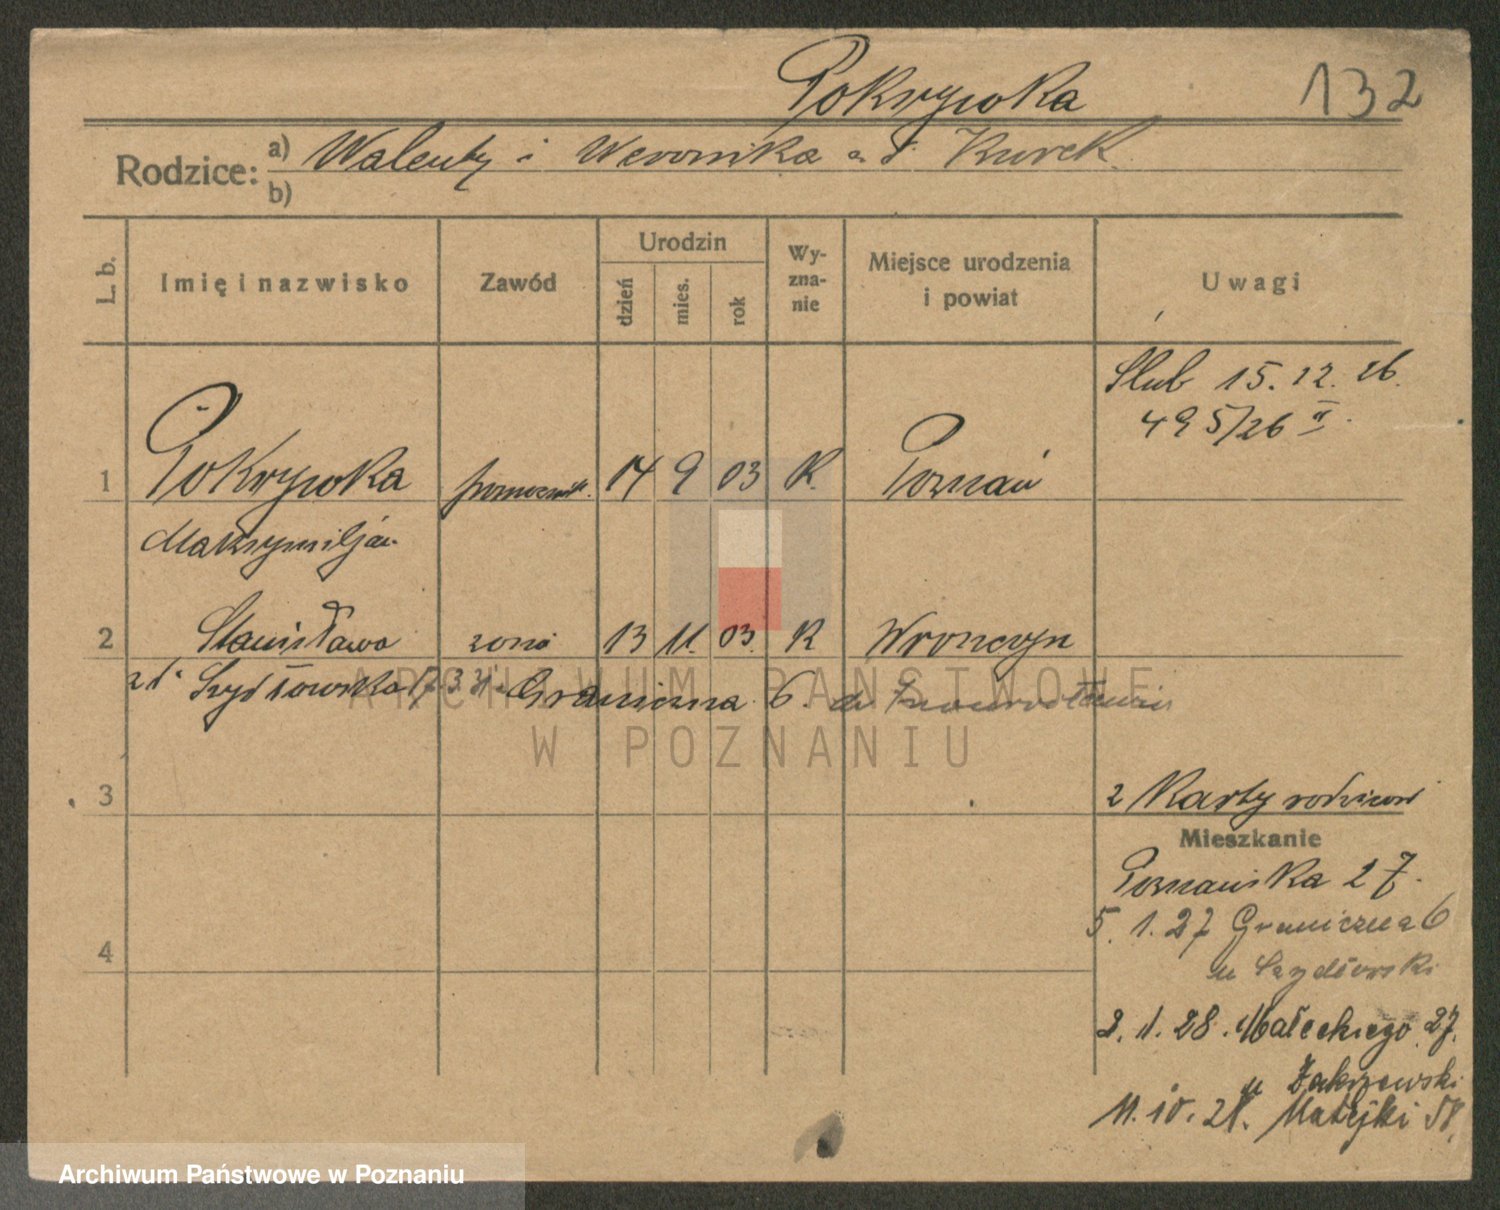 Pokrywka 132
Rodzice: a) Walenty i Weronika z d. Kurek
b)
L. b. Imię i nazwisko Zawód Urodzin dzień mies. rok Wy-zna-nie Miejsce urodzenia i powiat Uwagi
Ślub 15. 12. 26.
495/26 II.
1 Pokrywka pomocnik. 14 9 03 K. Poznań
Maksymiljan
2 Stanisława żona 13 11. 03. K Wronczyn
zd. Szydłowska 17.3.31 z Graniczna 6. do Inowrocławia
3 2 Karty rodzicow
Mieszkanie
Poznańska 27.
5. 1. 27 Graniczna 6
4
u Szydłowski
2. 11. 28. Małeckiego 27.
u Zakrzewski
11. 10. 2 Matejki
ARCHIWUM PAŃSTWOWE
W POZNANIU
Archiwum Państwowe w Poznaniu